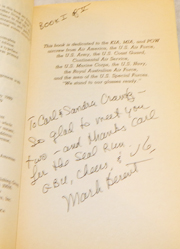 BOOK I of V
This book is dedicated to the KIA, MIA, and POW
aircrews from Air America, the U.S. Air Force,
the U.S. Army, the U.S. Coast Guard,
Continental Air Service,
the U.S. Marine Corps, the U.S. Navy,
the Royal Australian Air Force,
and the men of the U.S. Special Forces.
"We stand to our glasses ready."
To Carl & Sandra
so glad to meet you
two - and thanks Carl
for the Seal Run
GBU, Cheers, & √6,
Mark Berent